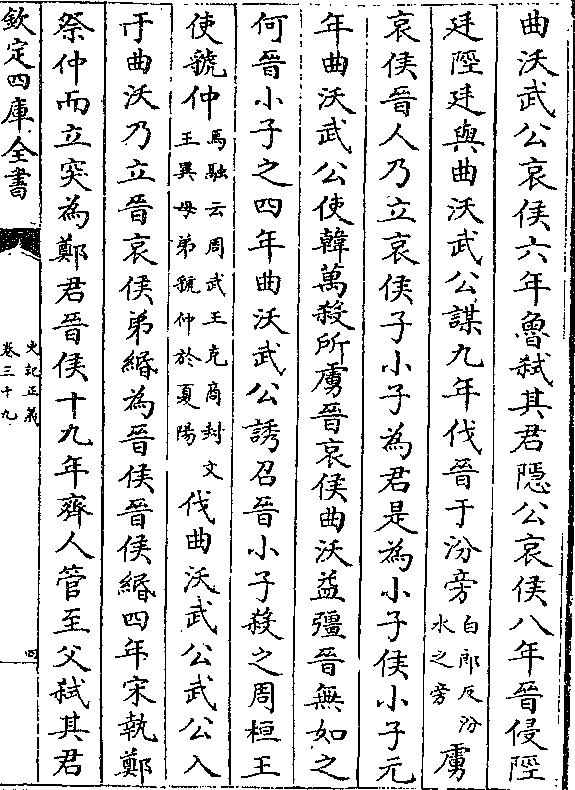 曲沃武公哀侯六年魯弑其君隱公哀侯八年晉侵陘
廷陘廷與曲沃武公謀九年伐晉于汾旁
白郎反汾
水之旁
虜
哀侯晉人乃立哀侯子小子為君是為小子侯小子元
年曲沃武公使韓萬殺所虜晉哀侯曲沃益彊晉無如之
何晉小子之四年曲沃武公誘召晉小子殺之周桓王
使虢仲
馬融云周武王克商封文
王異母弟虢仲於夏陽
伐曲沃武公武公入
于曲沃乃立晉哀侯弟緡為晉侯晉侯緡四年宋執鄭
祭仲而立突為鄭君晉侯十九年齊人管至父弑其君
欽定四庫全書
史記正義
卷三十九
四